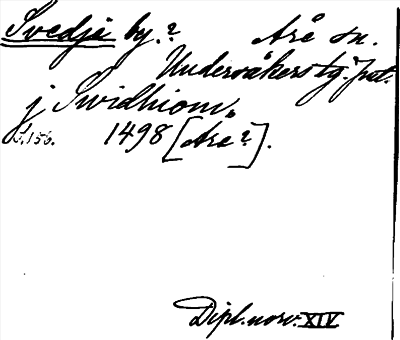 Svedja by.? Åre sn.
Undersåkers tg. Jmt.
j Swidhiom,
S. 156. 1498 [Åre?].
Dipl. norv. XIV